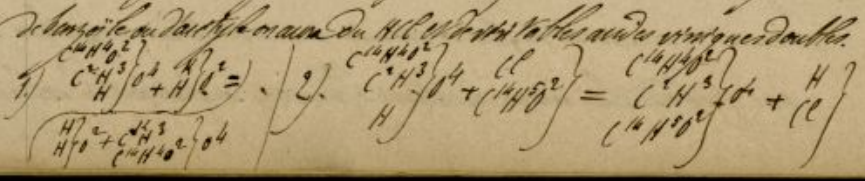 de benzoïle ou d'acétyle on aura du HCl et de véritables acides viniques doubles.
C¹⁴H⁴O² C²H³ H } O⁴ + K H } O² =
H H } O² + C²H³ C¹⁴H⁴O² } O⁴
2). C¹⁴H⁴O² C²H³ H } O⁴ + Cl C¹⁴H⁵O² } = C¹⁴H⁴O² C²H³ C¹⁴H⁵O² } O⁴ + H Cl }